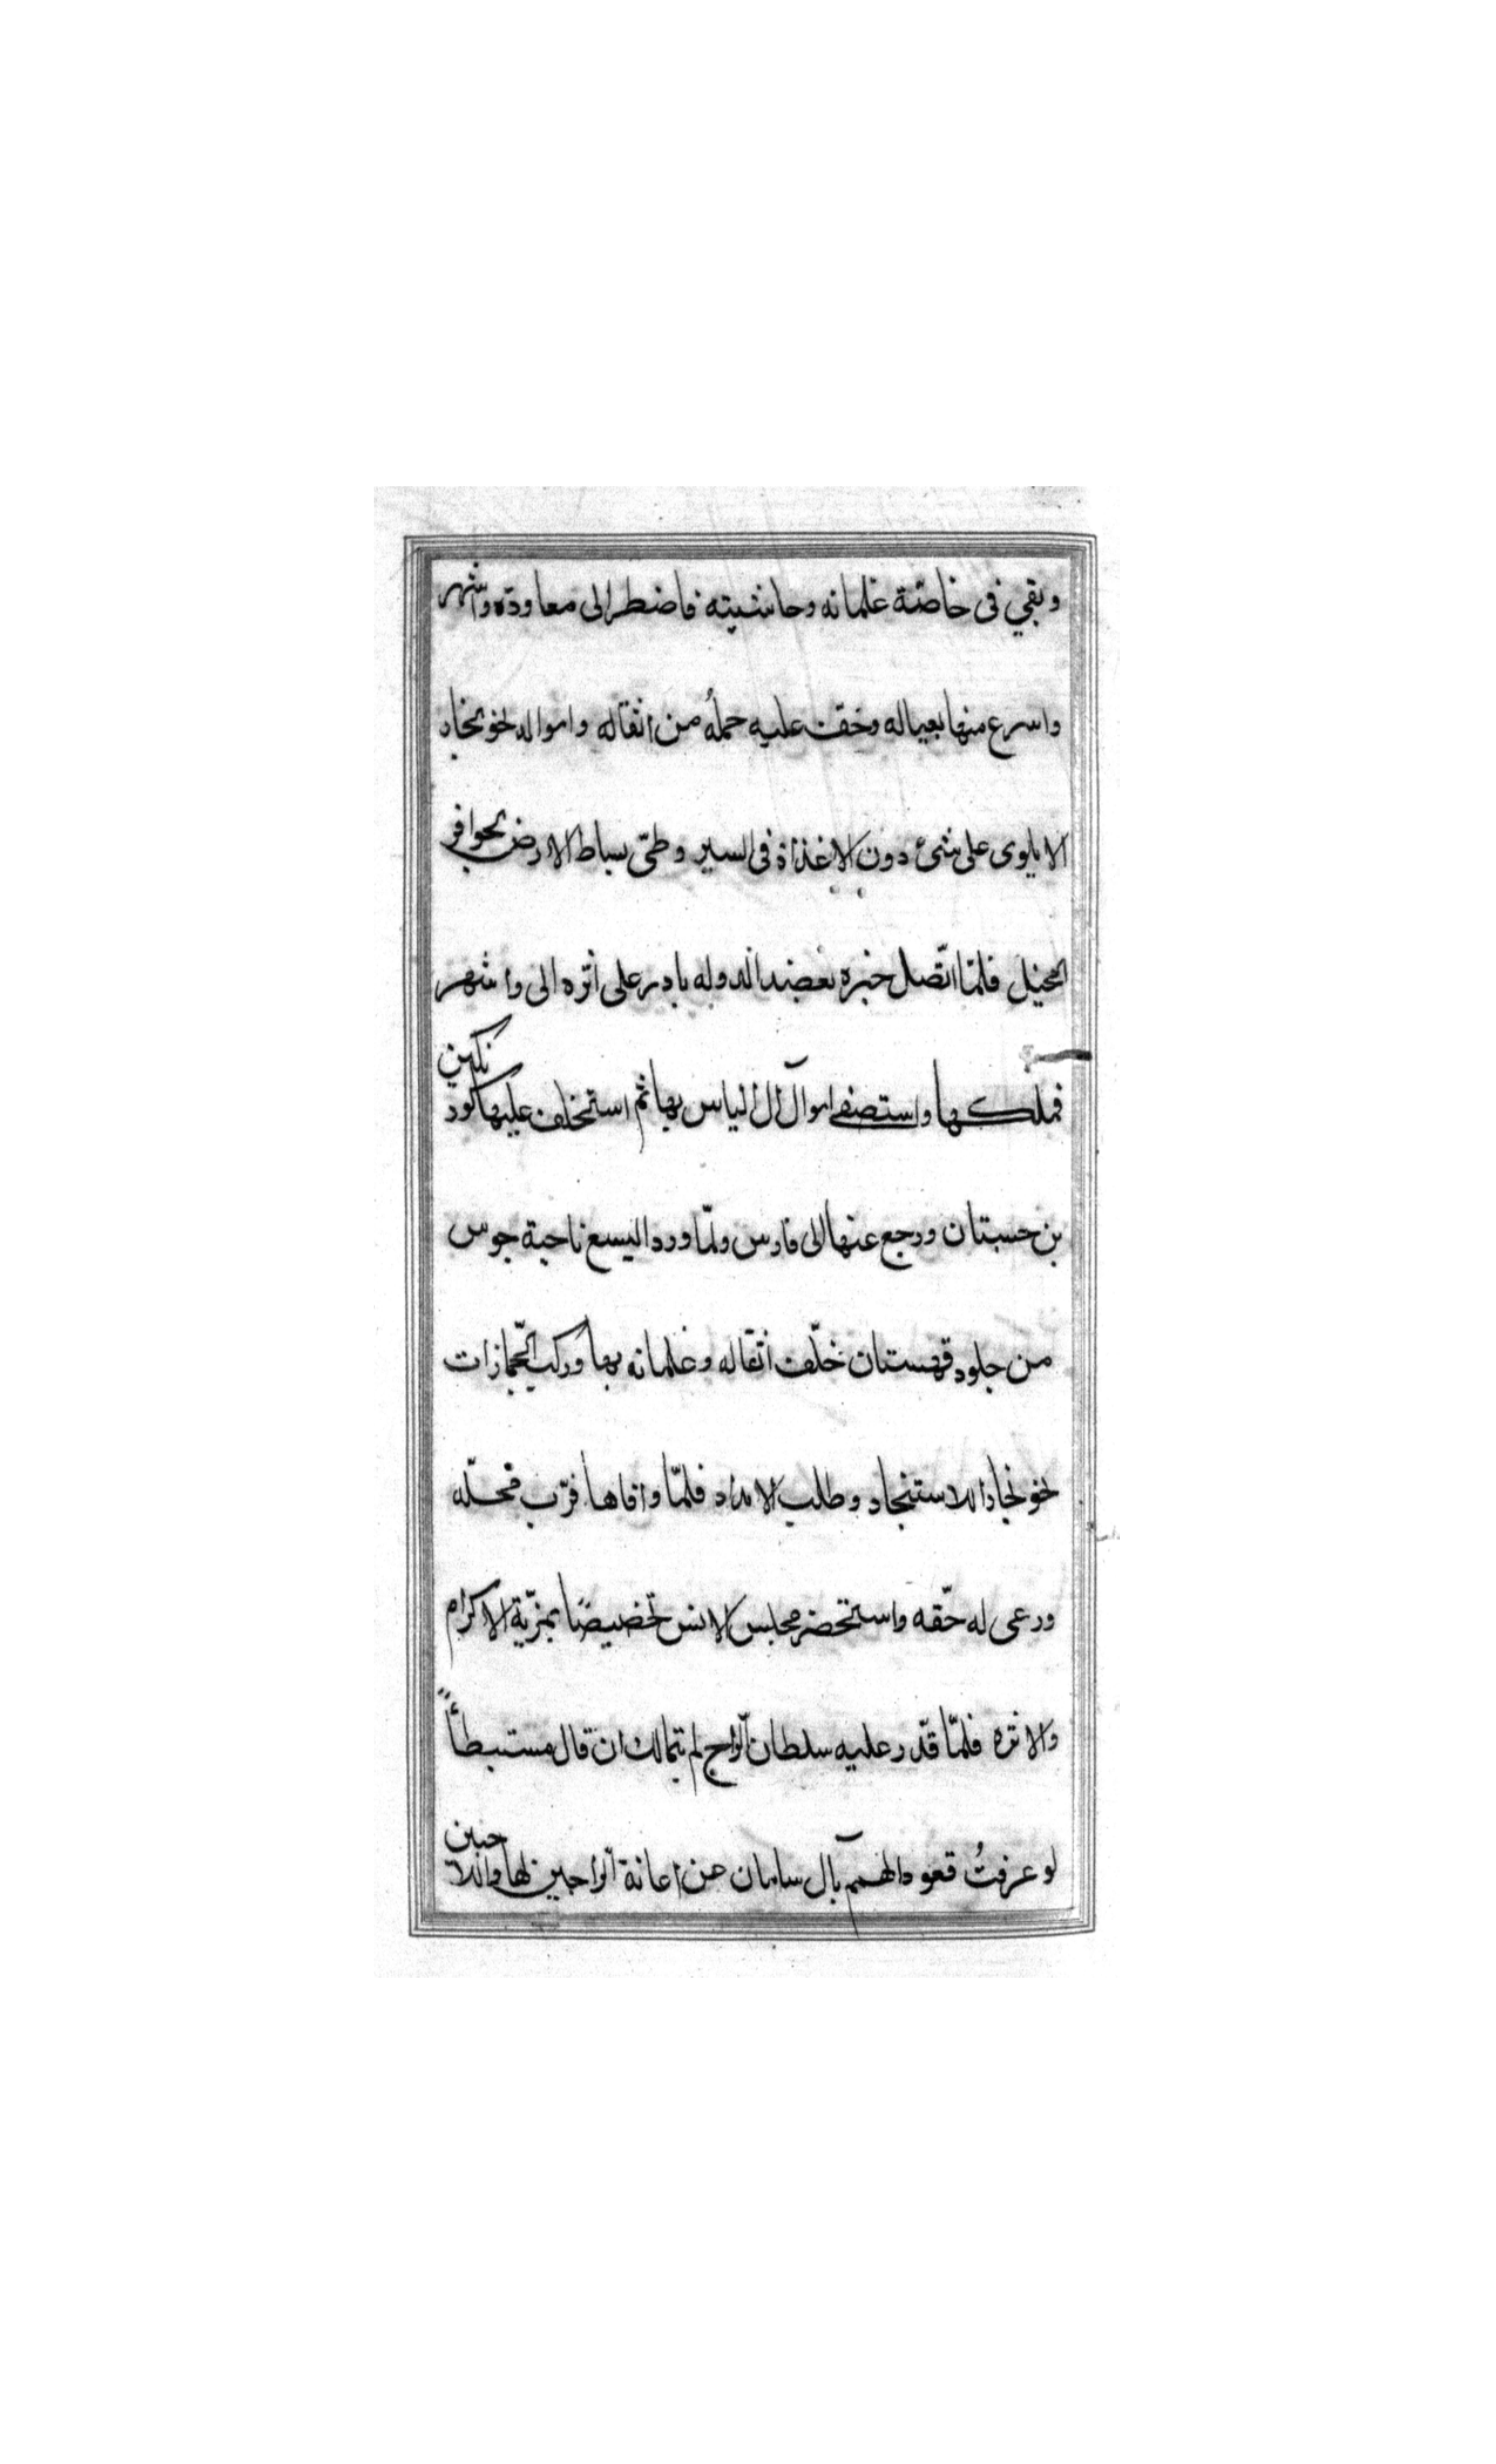 وبقي فى خاصّة غلمانه وحاشيته فاضطر الى معاودة واشهر
واسرع منها بعياله وخفت عليه حملهُ من اثقاله وامواله نحو بخارا
لا يلوى على شئ دون الاغذاذ فى السير وطىّ بساط الارض بحوافر
الخيل فلمّا اتّصل خبره بعضد الدوله بادر على اثره الى واشهر
فملكها واستصفى اموال آل الياس بها ثم استخلف عليها كورتكين
بن جستان ورجع عنها الى فارس ولمّا ورد اليسع ناحية جوس
من حلود قهستان خلّف اثقاله وغلمانه بها وركب الجمّازات
نحو بخارا للاستنجاد وطلب الامداد فلمّا وافاها قرّب محلّه
ورعى له حقّه واستحضر مجلس الانس تخصيصًا بمزيّة الاكرام
والاثره فلمّا قدر عليه سلطان الراح لم يتمالك ان قال مستبطأً
لو عرفتُ قعود الهمم بآل سامان عن اعانة الراجين لها واللاجين